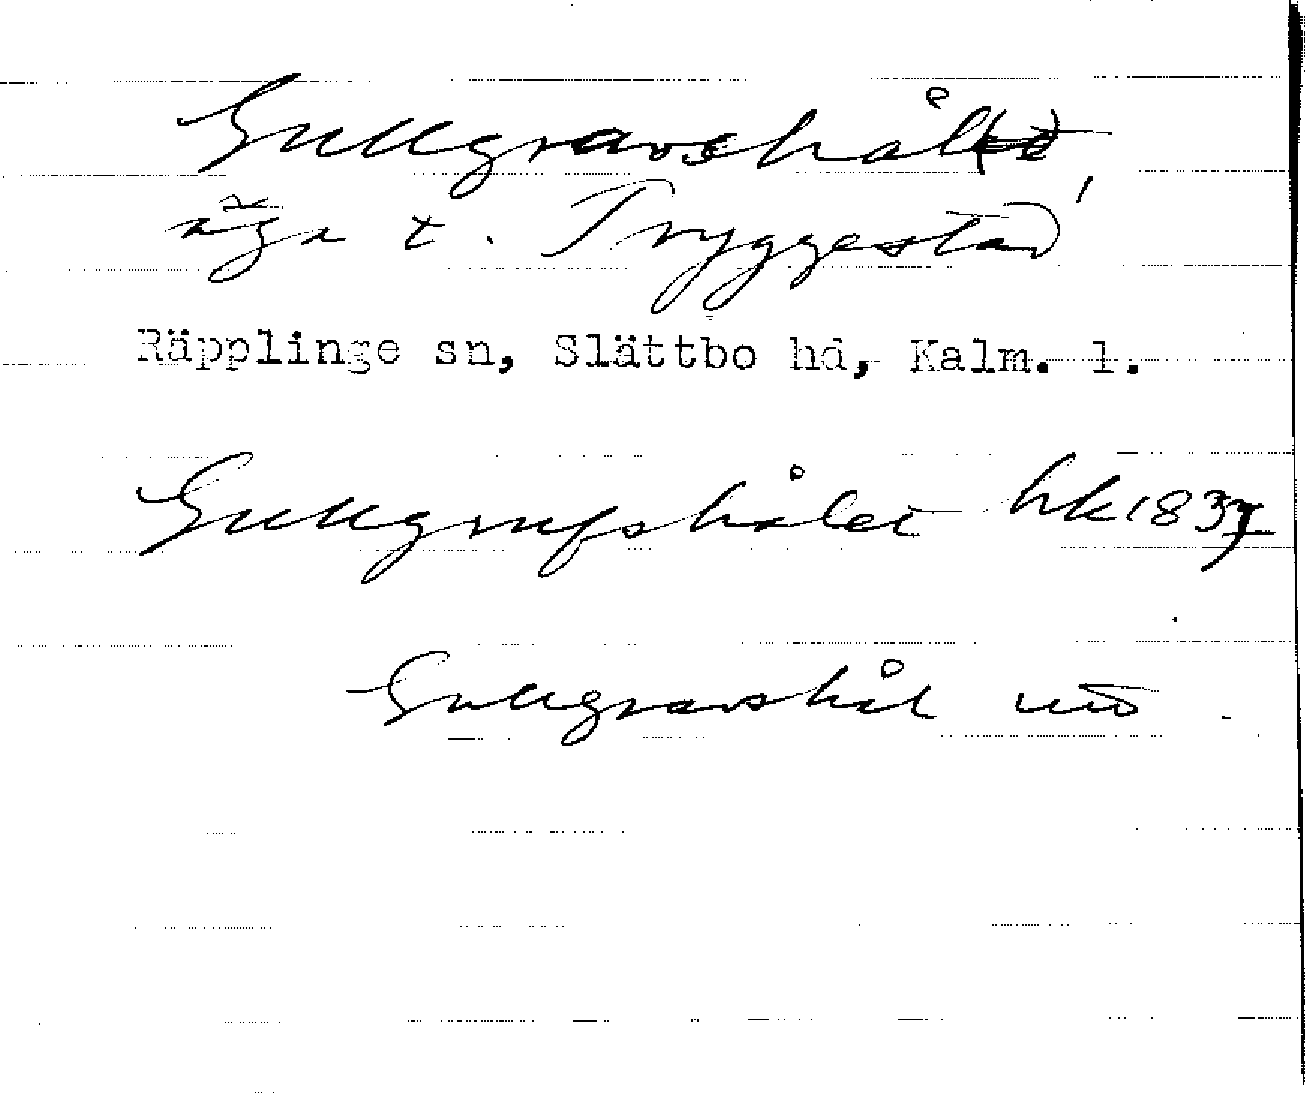 Gullgravshål(et),
äga t. Tryggestad
Räpplinge sn, Slättbo hd, Kalm. l.
Gullgrafshålet hk 1837
Gullgravshål